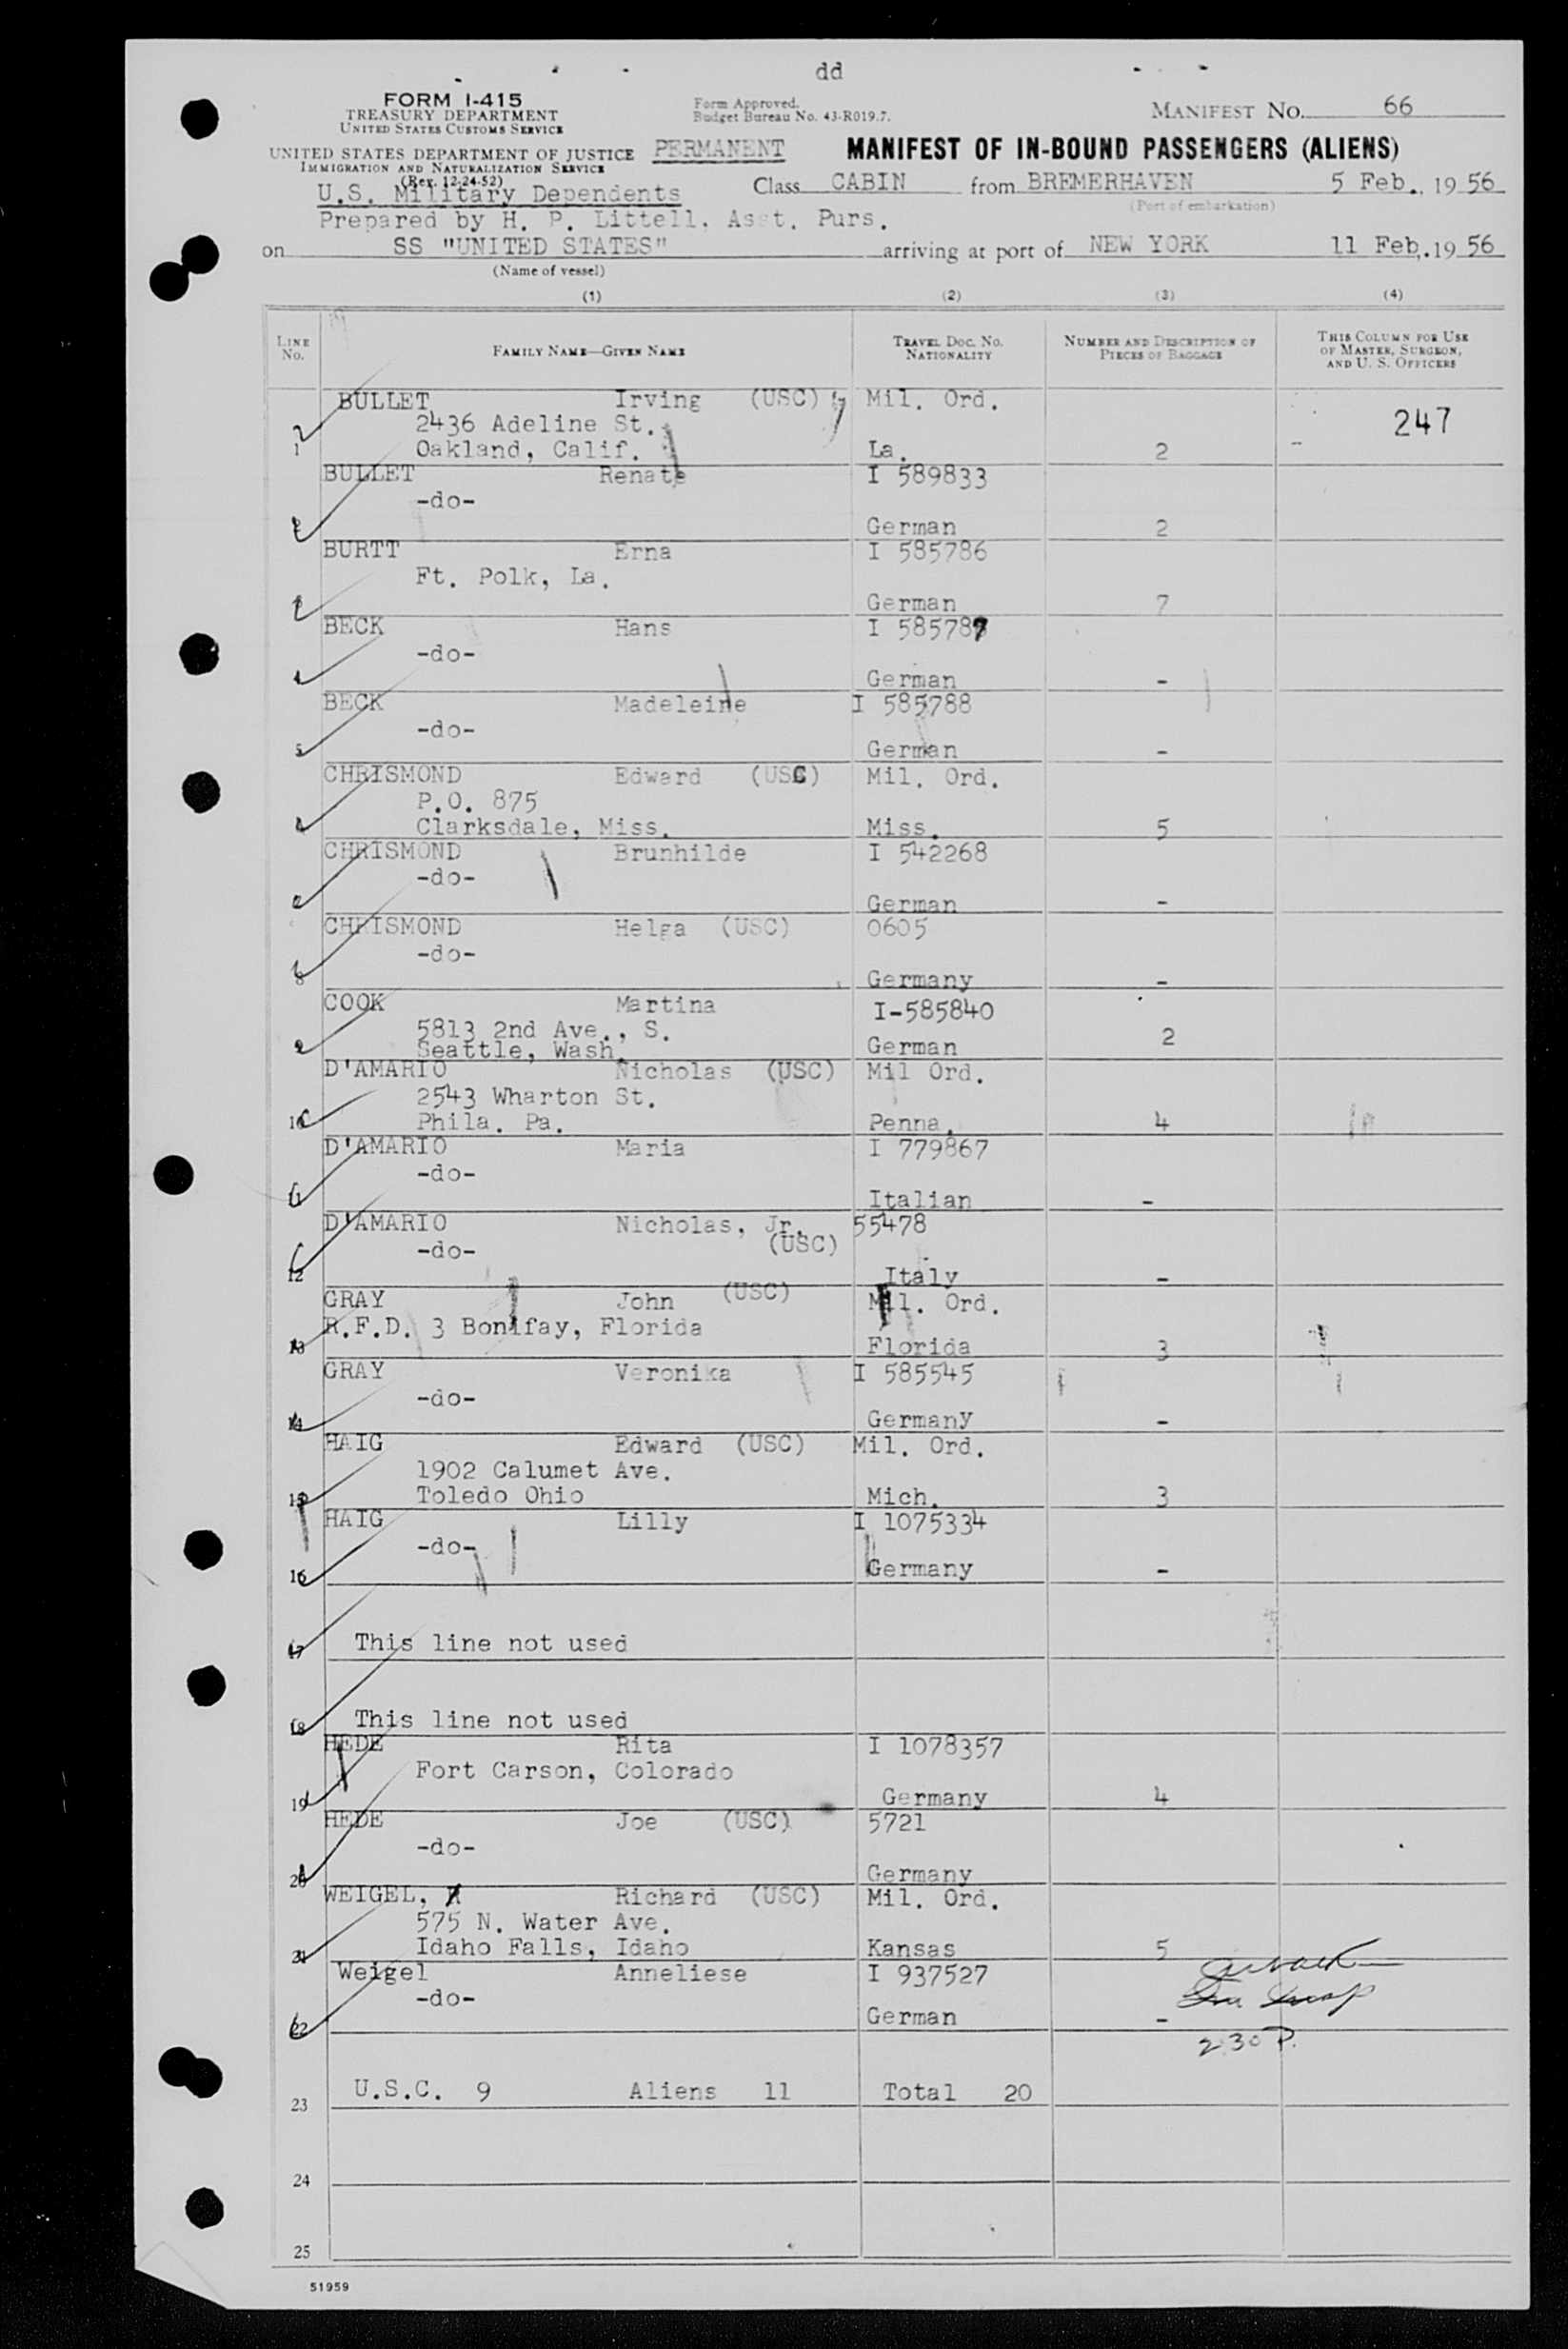 dd
FORM I-415
TREASURY DEPARTMENT
UNITED STATES CUSTOMS SERVICE
Form Approved.
Budget Bureau No. 43-R019.7.
MANIFEST No. 66
UNITED STATES DEPARTMENT OF JUSTICE
IMMIGRATION AND NATURALIZATION SERVICE
(Rev. 12-24-52)
PERMANENT MANIFEST OF IN-BOUND PASSENGERS (ALIENS)
U.S. Military Dependents
Class CABIN from BREMERHAVEN 5 Feb., 19 56
(Port of embarkation)
Prepared by H. P. Littell, Asst. Purs.
on SS "UNITED STATES" arriving at port of NEW YORK 11 Feb,.19 56
(Name of vessel)
(1) (2) (3) (4)
LINE No. FAMILY NAME—GIVEN NAME TRAVEL DOC. NO. NATIONALITY NUMBER AND DESCRIPTION OF PIECES OF BAGGAGE THIS COLUMN FOR USE OF MASTER, SURGEON, AND U. S. OFFICERS
BULLET Irving (USC) Mil. Ord.
2436 Adeline St. 247
1 Oakland, Calif. La. 2
BULLET Renate I 589833
-do-
2 German 2
BURTT Erna I 585786
Ft. Polk, La.
3 German 7
BECK Hans I 585787
-do-
4 German -
BECK Madeleine I 585788
-do-
5 German -
CHRISMOND Edward (USC) Mil. Ord.
P.O. 875
6 Clarksdale, Miss. Miss. 5
CHRISMOND Brunhilde I 542268
-do-
7 German -
CHRISMOND Helga (USC) 0605
-do-
8 Germany -
COOK Martina I-585840
5813 2nd Ave., S. 2
9 Seattle, Wash. German
D'AMARIO Nicholas (USC) Mil Ord.
2543 Wharton St.
10 Phila. Pa. Penna. 4
D'AMARIO Maria I 779867
-do-
11 Italian -
D'AMARIO Nicholas, Jr. 55478
-do- (USC)
12 Italy -
GRAY John (USC) Mil. Ord.
R.F.D. 3 Bonifay, Florida
13 Florida 3
GRAY Veronika I 585545
-do-
14 Germany -
HAIG Edward (USC) Mil. Ord.
1902 Calumet Ave.
15 Toledo Ohio Mich. 3
HAIG Lilly I 1075334
-do-
16 Germany -
17 This line not used
18 This line not used
HEDE Rita I 1078357
Fort Carson, Colorado
19 Germany 4
HEDE Joe (USC) 5721
-do-
20 Germany
WEIGEL, Richard (USC) Mil. Ord.
575 N. Water Ave.
21 Idaho Falls, Idaho Kansas 5
Weigel Anneliese I 937527
-do-
22 German -
2:30 P.
23 U.S.C. 9 Aliens 11 Total 20
24
25
51959